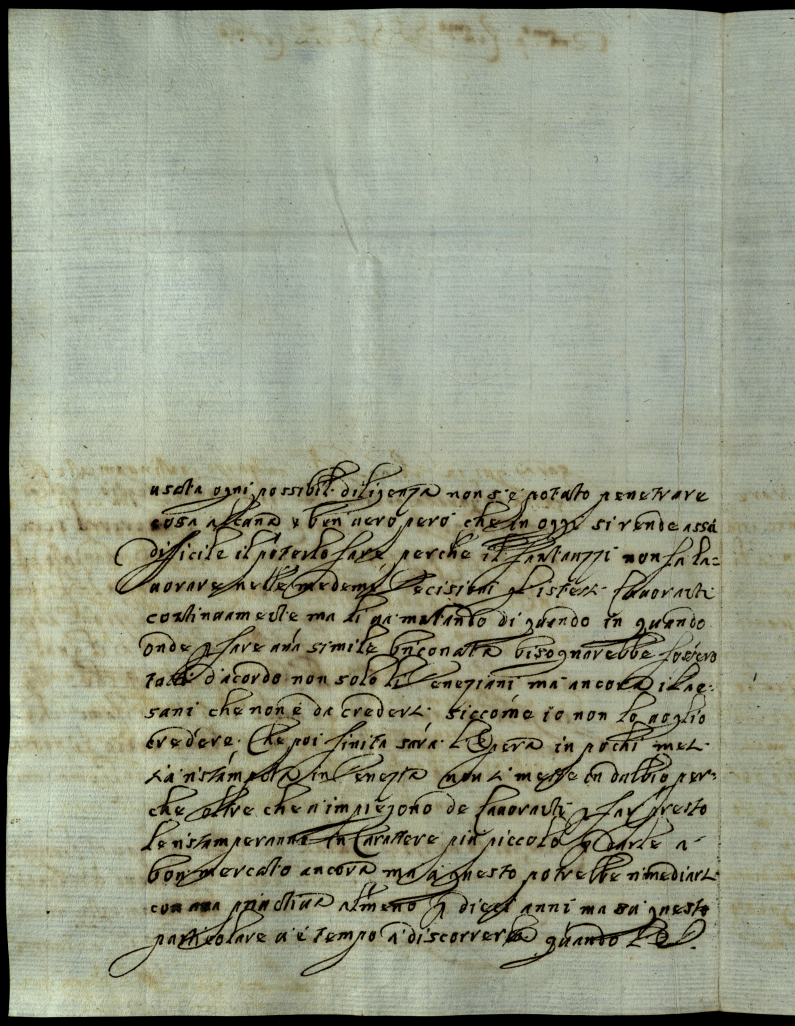 usata ogni possibil diligenza non s'è potuto penetrare
cosa alcuna è ben vero però che in oggi si rende assai
difficile il poterlo fare perche il Fantauzzi non fa la=
vorare nelle medeme Decisioni gl'istessi lavoranti
continuamente ma li va mutando di quando in quando
onde p fare una simile briconata bisognarebbe fossero
tutti d'acordo non solo li Veneziani ma ancora i
sani che non è da credersi siccome io non lo voglio
credere. Che poi finita sarà l'Opera in pochi mesi
sia ristampata in Venezia non si mette in dubbio per=
che oltre che v'impiegono de lavoranti p far presto
le ristamperanno in Carattere più piccolo p darle a
bon mercato ancora ma a questo potrebbe rimediarsi
con una privativa almeno p dieci anni ma su questo
particolare vi è tempo a discorrerla quando l'O